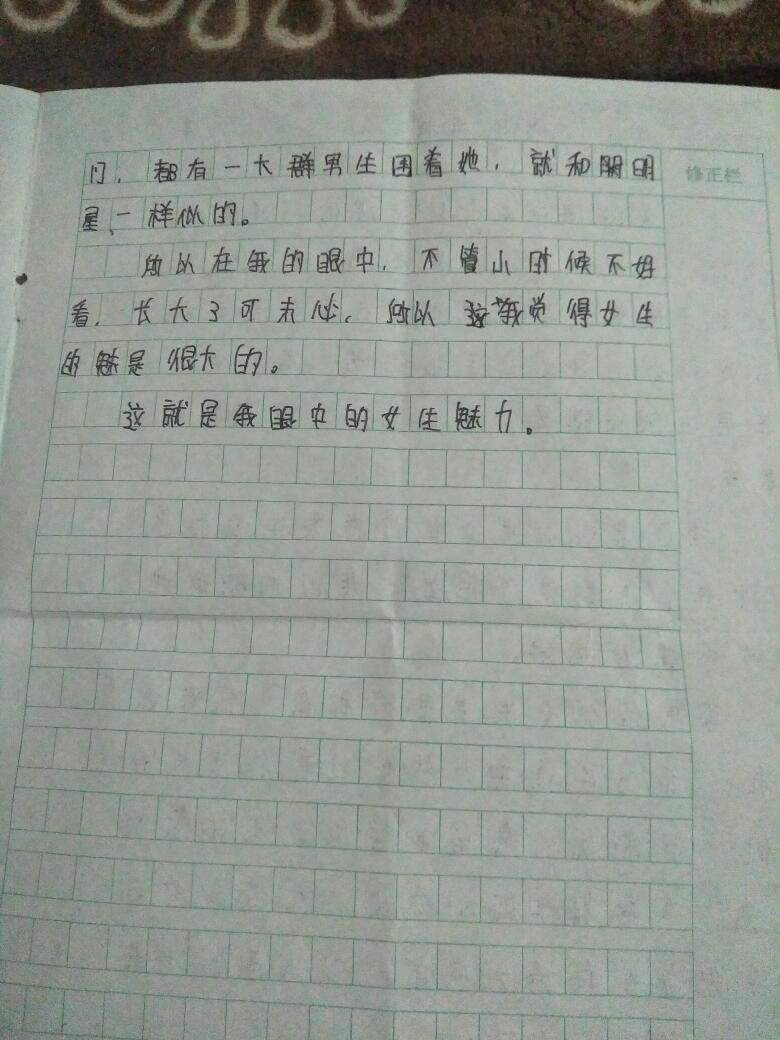 门，都有一大群男生围着她，就和明明
修正栏
星一样似的。
所以在我的眼中，不管小时候不好
看，长大了可未必，所以我觉得女生
的魅是很大的。
这就是我眼中的女生魅力。